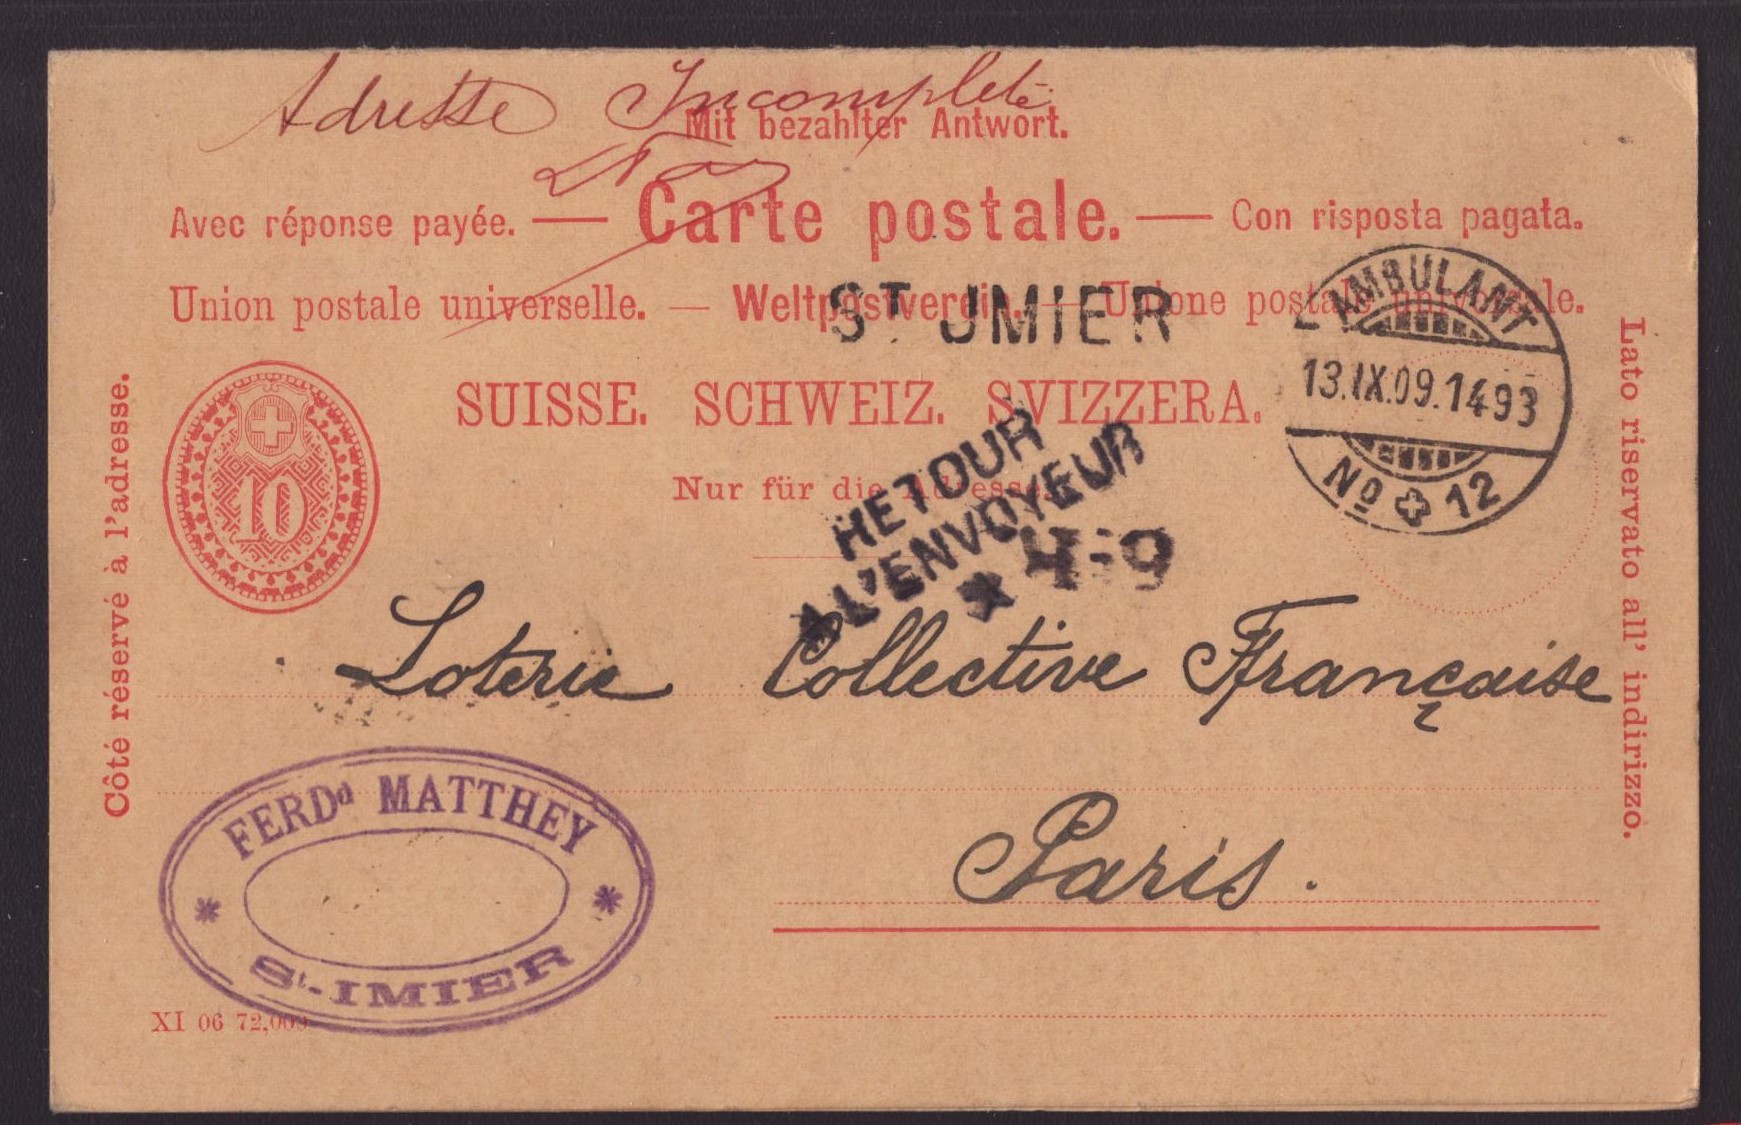 Adresse Incomplete
Mit bezahlter Antwort.
Avec réponse payée. — Carte postale. — Con risposta pagata.
Union postale universelle. — Weltpostverein. — Unione postale universale.
ST JMIER
AMBULANT
13.IX.09.1493
No 12
10
SUISSE. SCHWEIZ. SVIZZERA.
Nur für die Adresse.
RETOUR
A L'ENVOYEUR
Côté réservé à l'adresse.
Lato riservato all' indirizzo.
Loterie Collective Française
Paris.
FERDd MATTHEY
St-IMIER
XI 06 72,000